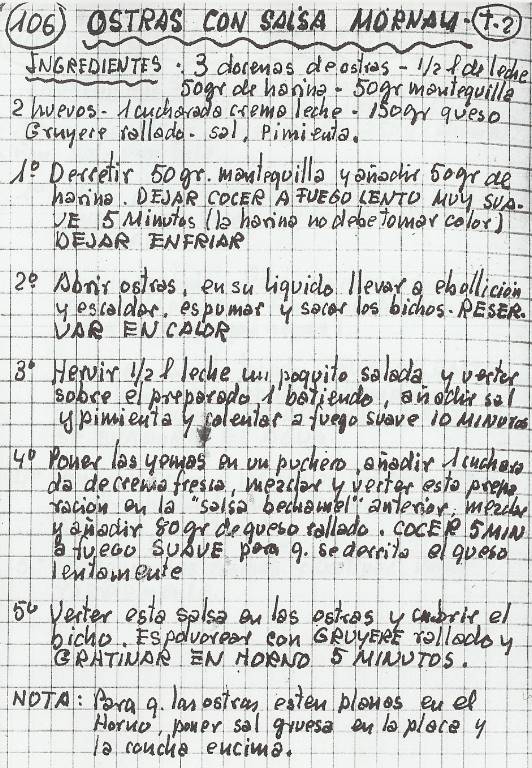 106 OSTRAS CON SALSA MORNAY. T.2
INGREDIENTES. 3 docenas de ostras - 1/2 l de leche
50gr de harina - 50gr mantequilla
2 huevos - 1 cucharada crema leche - 150gr queso
Gruyere rallado - sal, Pimienta.
1º Derretir 50gr. mantequilla y añadir 50gr de
harina. DEJAR COCER A FUEGO LENTO MUY SUA-
VE 5 Minutos (la harina no debe tomar color)
DEJAR ENFRIAR
2º Abrir ostras, en su liquido llevar a ebollición
y escaldar, espumar y sacar los bichos. RESER-
VAR EN CALOR
3º Hervir 1/2 l leche un poquito salada y verter
sobre el preparado 1º batiendo, añadir sal
y pimienta y calentar a fuego suave 10 MINUTOS
4º Poner las yemas en un puchero, añadir 1 cuchara
da de crema fresca, mezclar y verter esta prepa
ración en la "salsa bechamel" anterior, mezclar
y añadir 80gr de queso rallado. COCER 5 MIN
a fuego SUAVE para q. se derrita el queso
lentamente
5º Verter esta salsa en las ostras y cubrir el
bicho. Espolvorear con GRUYERE rallado y
GRATINAR EN HORNO 5 MINUTOS.
NOTA: Para q. las ostras esten planas en el
Horno, poner sal gruesa en la placa y
la concha encima.